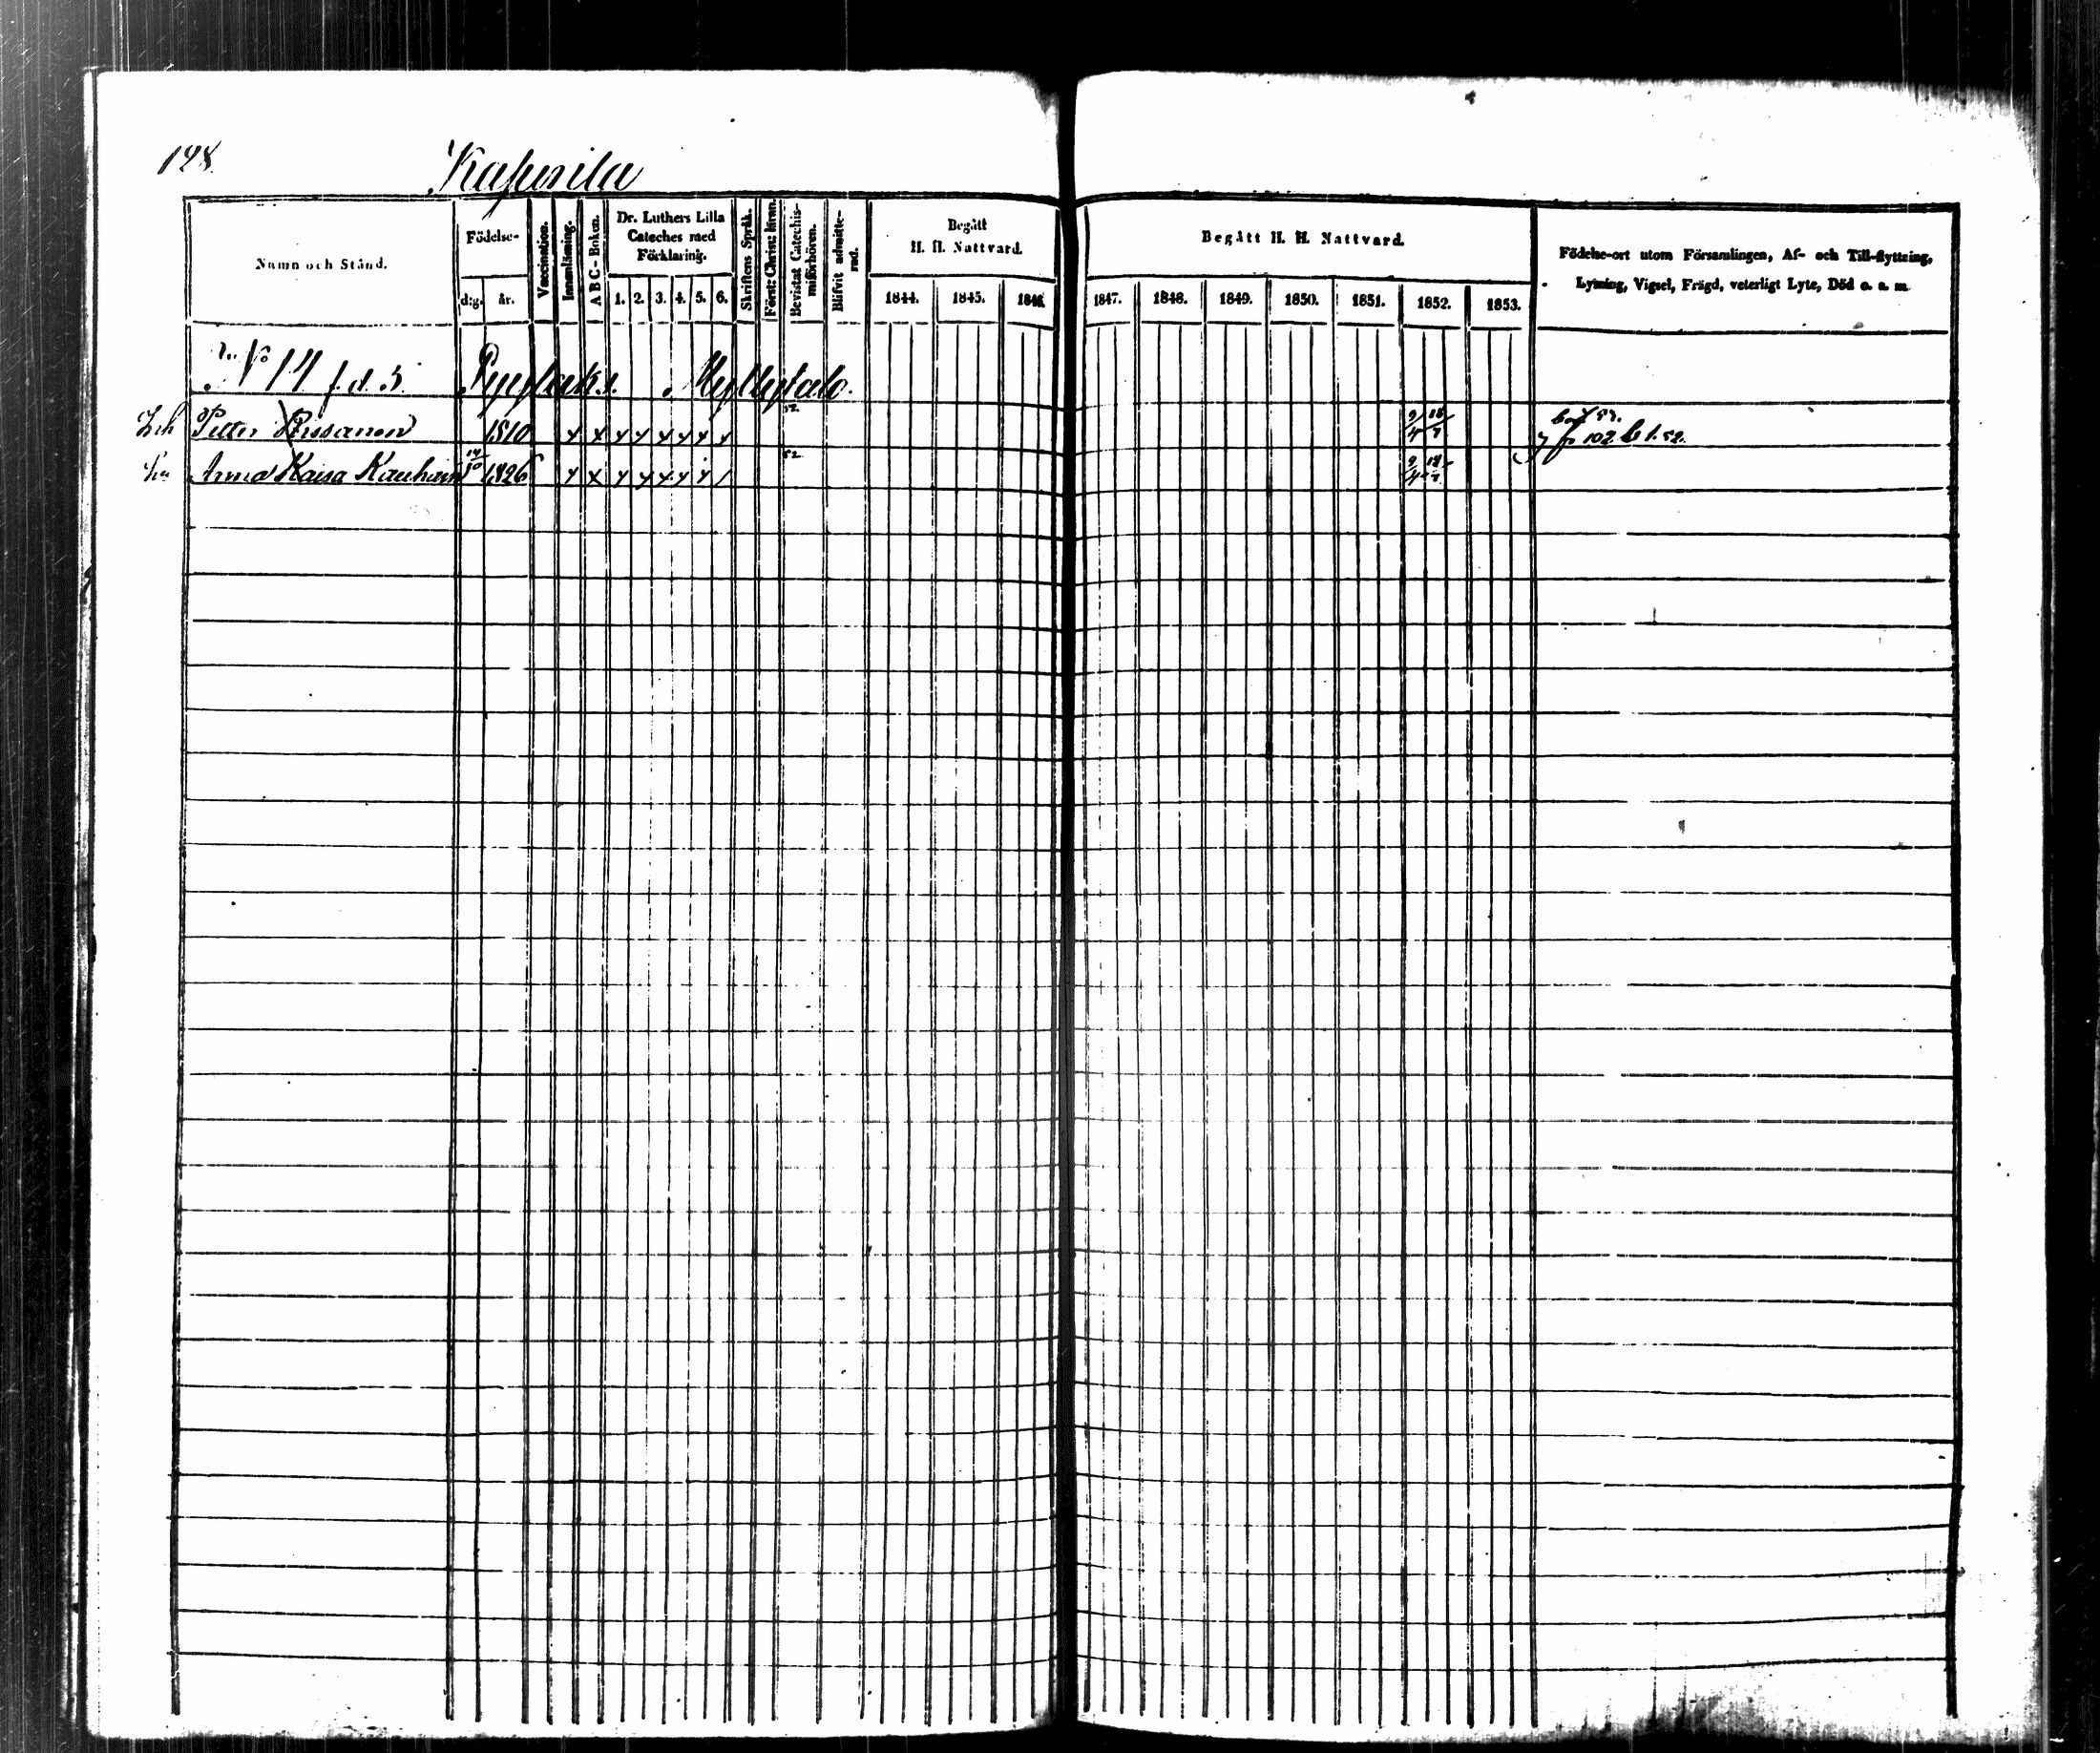 128.
Kaperila
Namn och Stånd.
Födelse-
d:g. år.
Vaccination.
Innanläsning.
A B C - Boken.
Dr. Luthers Lilla
Cateches med
Förklaring.
1. 2. 3. 4. 5. 6.
Skriftens Språk.
Först: Christ: kran.
Bevistat Catechis-
miförhören.
Blifvit admitte-
rad.
Begått
H. H. Nattvard.
1844. 1845. 1846.
Begått H. H. Nattvard.
1847. 1848. 1849. 1850. 1851. 1852. 1853.
Födelse-ort utom Församlingen, Af- och Till-flyttning,
Lysning, Vigsel, Frägd, veterligt Lyte, Död o. a. m.
No 14 f. d. 5 Myllytalo.
Petter 1810 52. 9/4 18/7
Anna Kaisa 1826 52 9/4 18/7
p 102 b 1. 52.